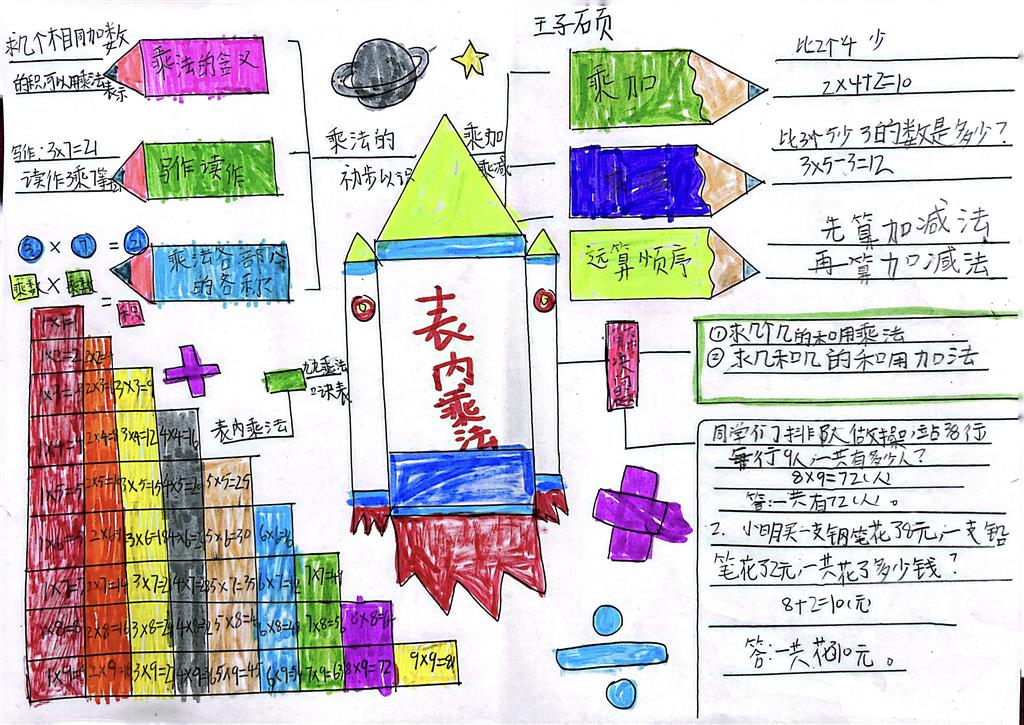 王子硕
求几个相同加数
的积可以用乘法表示
乘法的含义
写作:3×7=21
读作3乘7等
写作读作
3 × 7 = 21
乘数 × 乘数 = 积
乘法各部分
的各称
乘法的
初步认识
乘加
乘减
表内乘法
乘加
比2个4少
2×4+2=10
乘减
比3个5少3的数是多少?
3×5-3=12
运算顺序
先算加减法
再算加减法
解决问题
①求几个几的和用乘法
②求几和几的和用加法
同学们排队做操,站8行
每行9人,一共有多少人?
8×9=72(人)
答:一共有72(人)。
2. 小明买一支钢笔花了8元,一支铅
笔花了2元,一共花了多少钱?
8+2=10(元)
答:一共花10元。
九九乘法
口诀表
表内乘法
1×1=1
1×2=2 2×2=
1×3=3 2×3= 3×3=9
1×4=4 2×4=8 3×4=12 4×4=16
1×5=5 2×5=1 3×5=15 4×5=2 5×5=25
1×6=6 2×6= 3×6=18 4×6=2 5×6=30 6×6=
1×7=7 2×7=14 3×7=2 4×7=2 5×7=35 6×7= 7×7=49
1×8=8 2×8=16 3×8=24 4×8=32 5×8=4 6×8=48 7×8=56 8×8=64
1×9=9 2×9=18 3×9=27 4×9=36 5×9=45 6×9=54 7×9=63 8×9=72 9×9=81